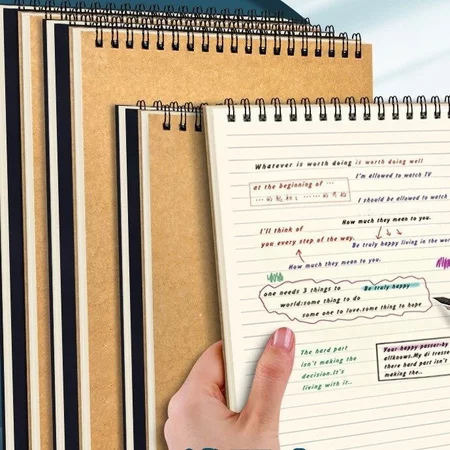 Whatever is worth doing is worth doing well
at the beginning of ...
I'm allowed to watch TV
I should be allowed to watch
How much they mean to you.
I'll think of
you every step of the way.
Be truly happy living in the wor
How much they mean to you.
one needs 3 things to Be truly happy
world:some thing to do
some one to love.some thing to hope
The hard part
isn't making the
decision.It's
living with it..
Your happy passer-by
allknows.My di tresse
there hard part isn't
making the..